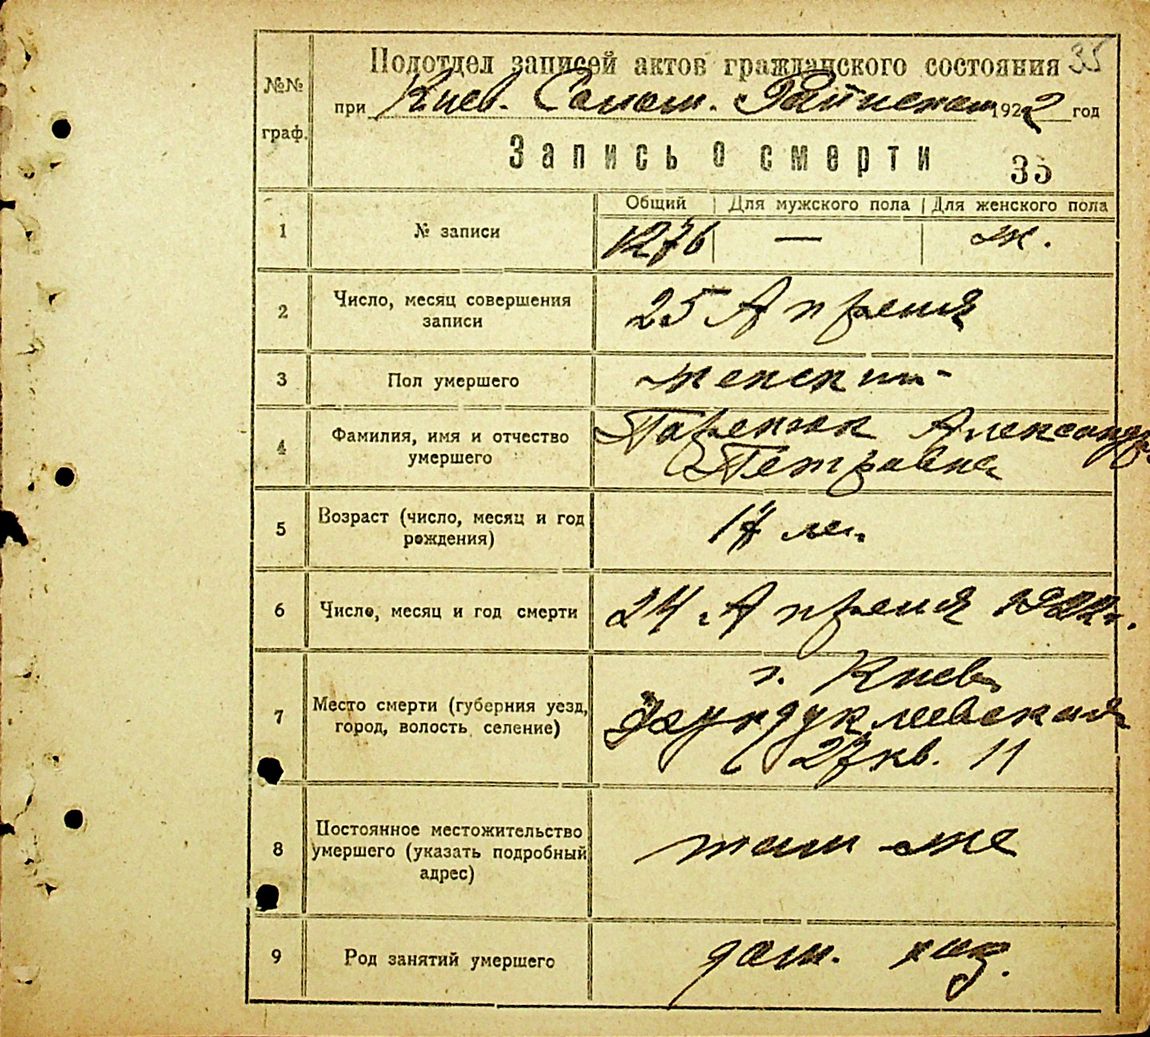 35
№№ граф.
Подотдел записей актов гражданского состояния
при Киев. Солом. 1922 год
Запись о смерти
35
Общий | Для мужского пола | Для женского пола
1 № записи 1276 — ж.
2 Число, месяц совершения
записи
25 Апреля
3 Пол умершего женский
4 Фамилия, имя и отчество
умершего
Александра
Петровна
5 Возраст (число, месяц и год
рождения)
17 ле.
6 Число, месяц и год смерти 24 Апреля 1922 г.
7 Место смерти (губерния уезд,
город, волость, селение)
г. Киев
Фундуклеевская
27 кв. 11
8 Постоянное местожительство
умершего (указать подробный
адрес)
там же
9 Род занятий умершего дом. хоз.